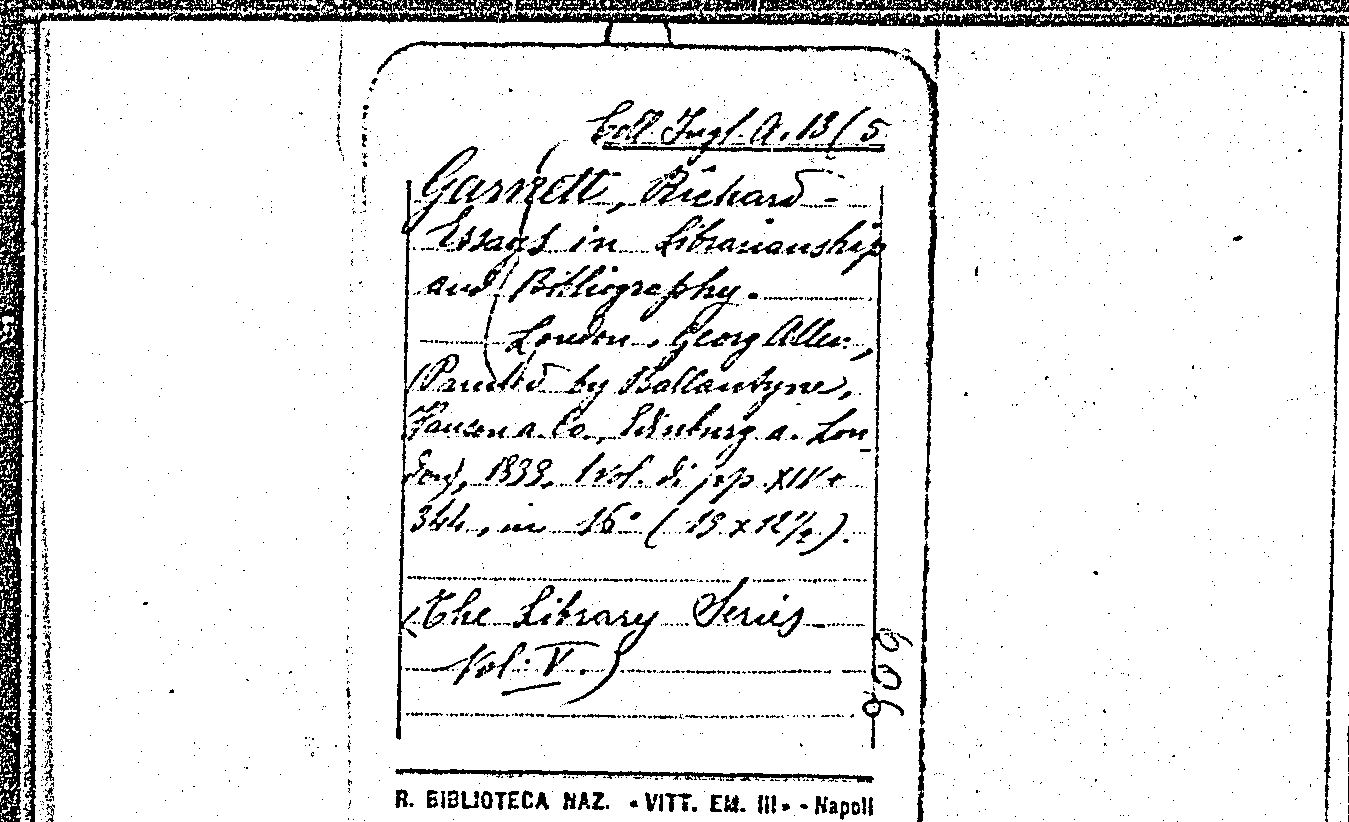 Coll. Ingl. A. 13/5
Garnett, Richard -
Essays in Librarianship
and Bibliography.
London, Georg Allen,
(Printed by Ballantyne,
Hanson a. Co., Edinburg a. Lon-
don), 1899, 1 vol. di pp. XIV +
344, in 16° (19 x 12 1/2).
(The Library Series
Vol. V.)
609
R. BIBLIOTECA NAZ. «VITT. EM. III» - Napoli